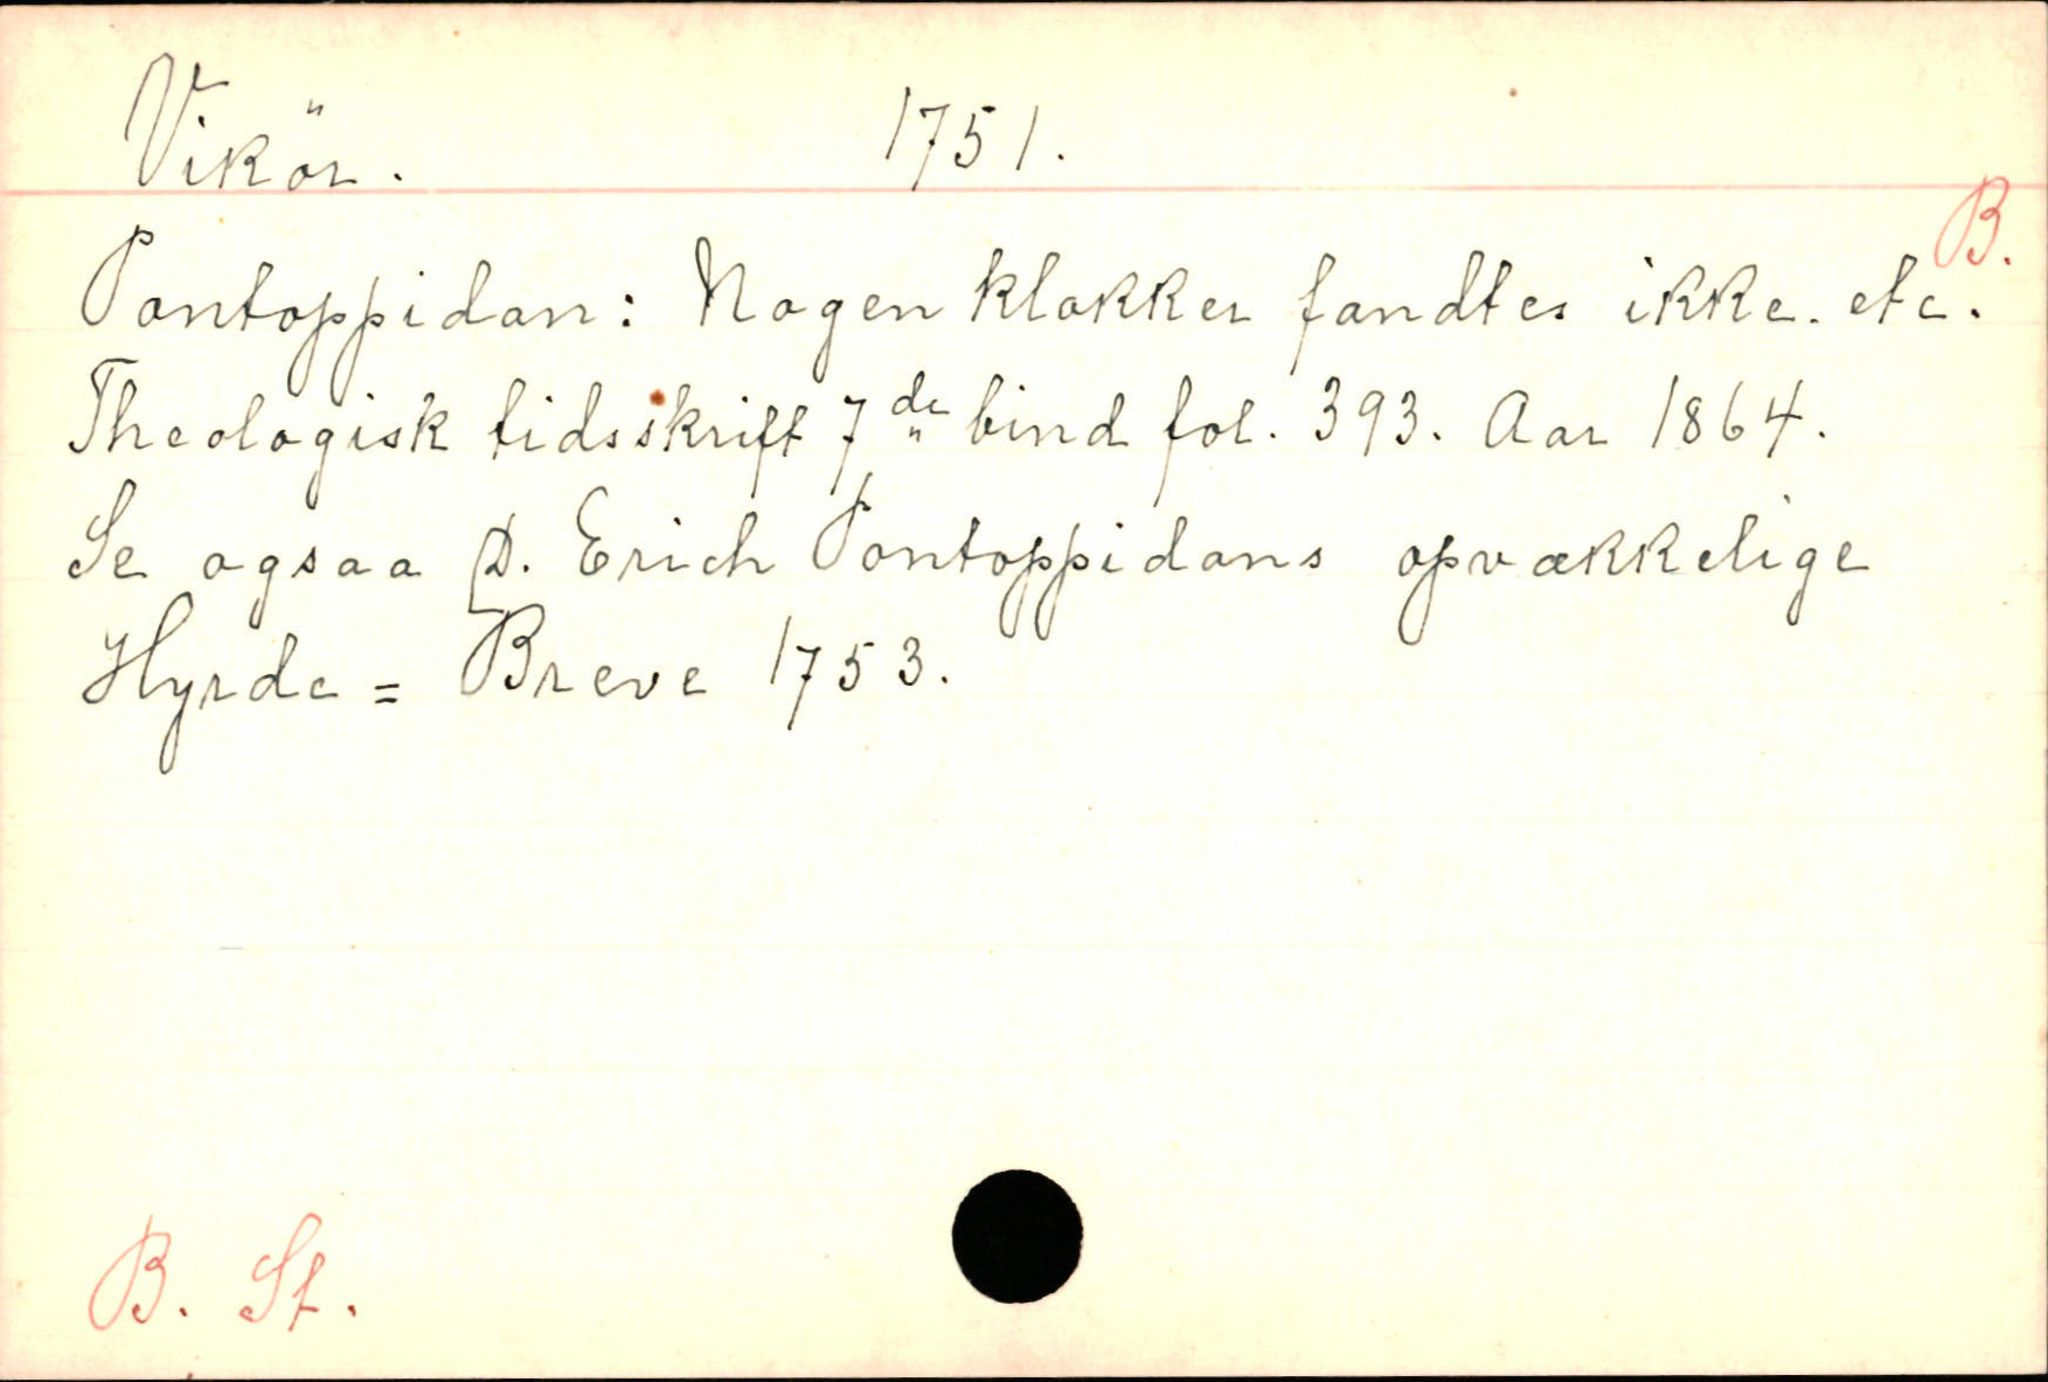 Vikör. 1751.
B.
Pontoppidan: Nogen klokker fandtes ikke. etc.
Theologisk tidsskrift 7de bind fol. 393. Aar 1864.
Se ogsaa D. Erich Pontoppidans opvækkelige
Hyrde = Breve 1753.
B. St.